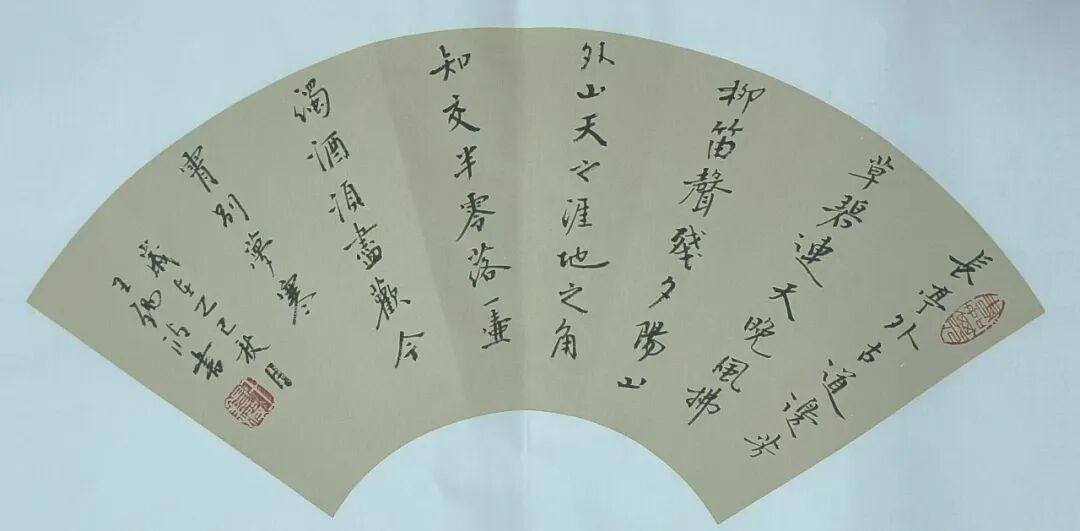 長亭外古道邊芳
草碧連天晚風拂
柳笛聲殘夕陽山
外山天之涯地之角
知交半零落一壺
濁酒須盡歡今
宵別夢寒
歲在乙巳秋月
王
書